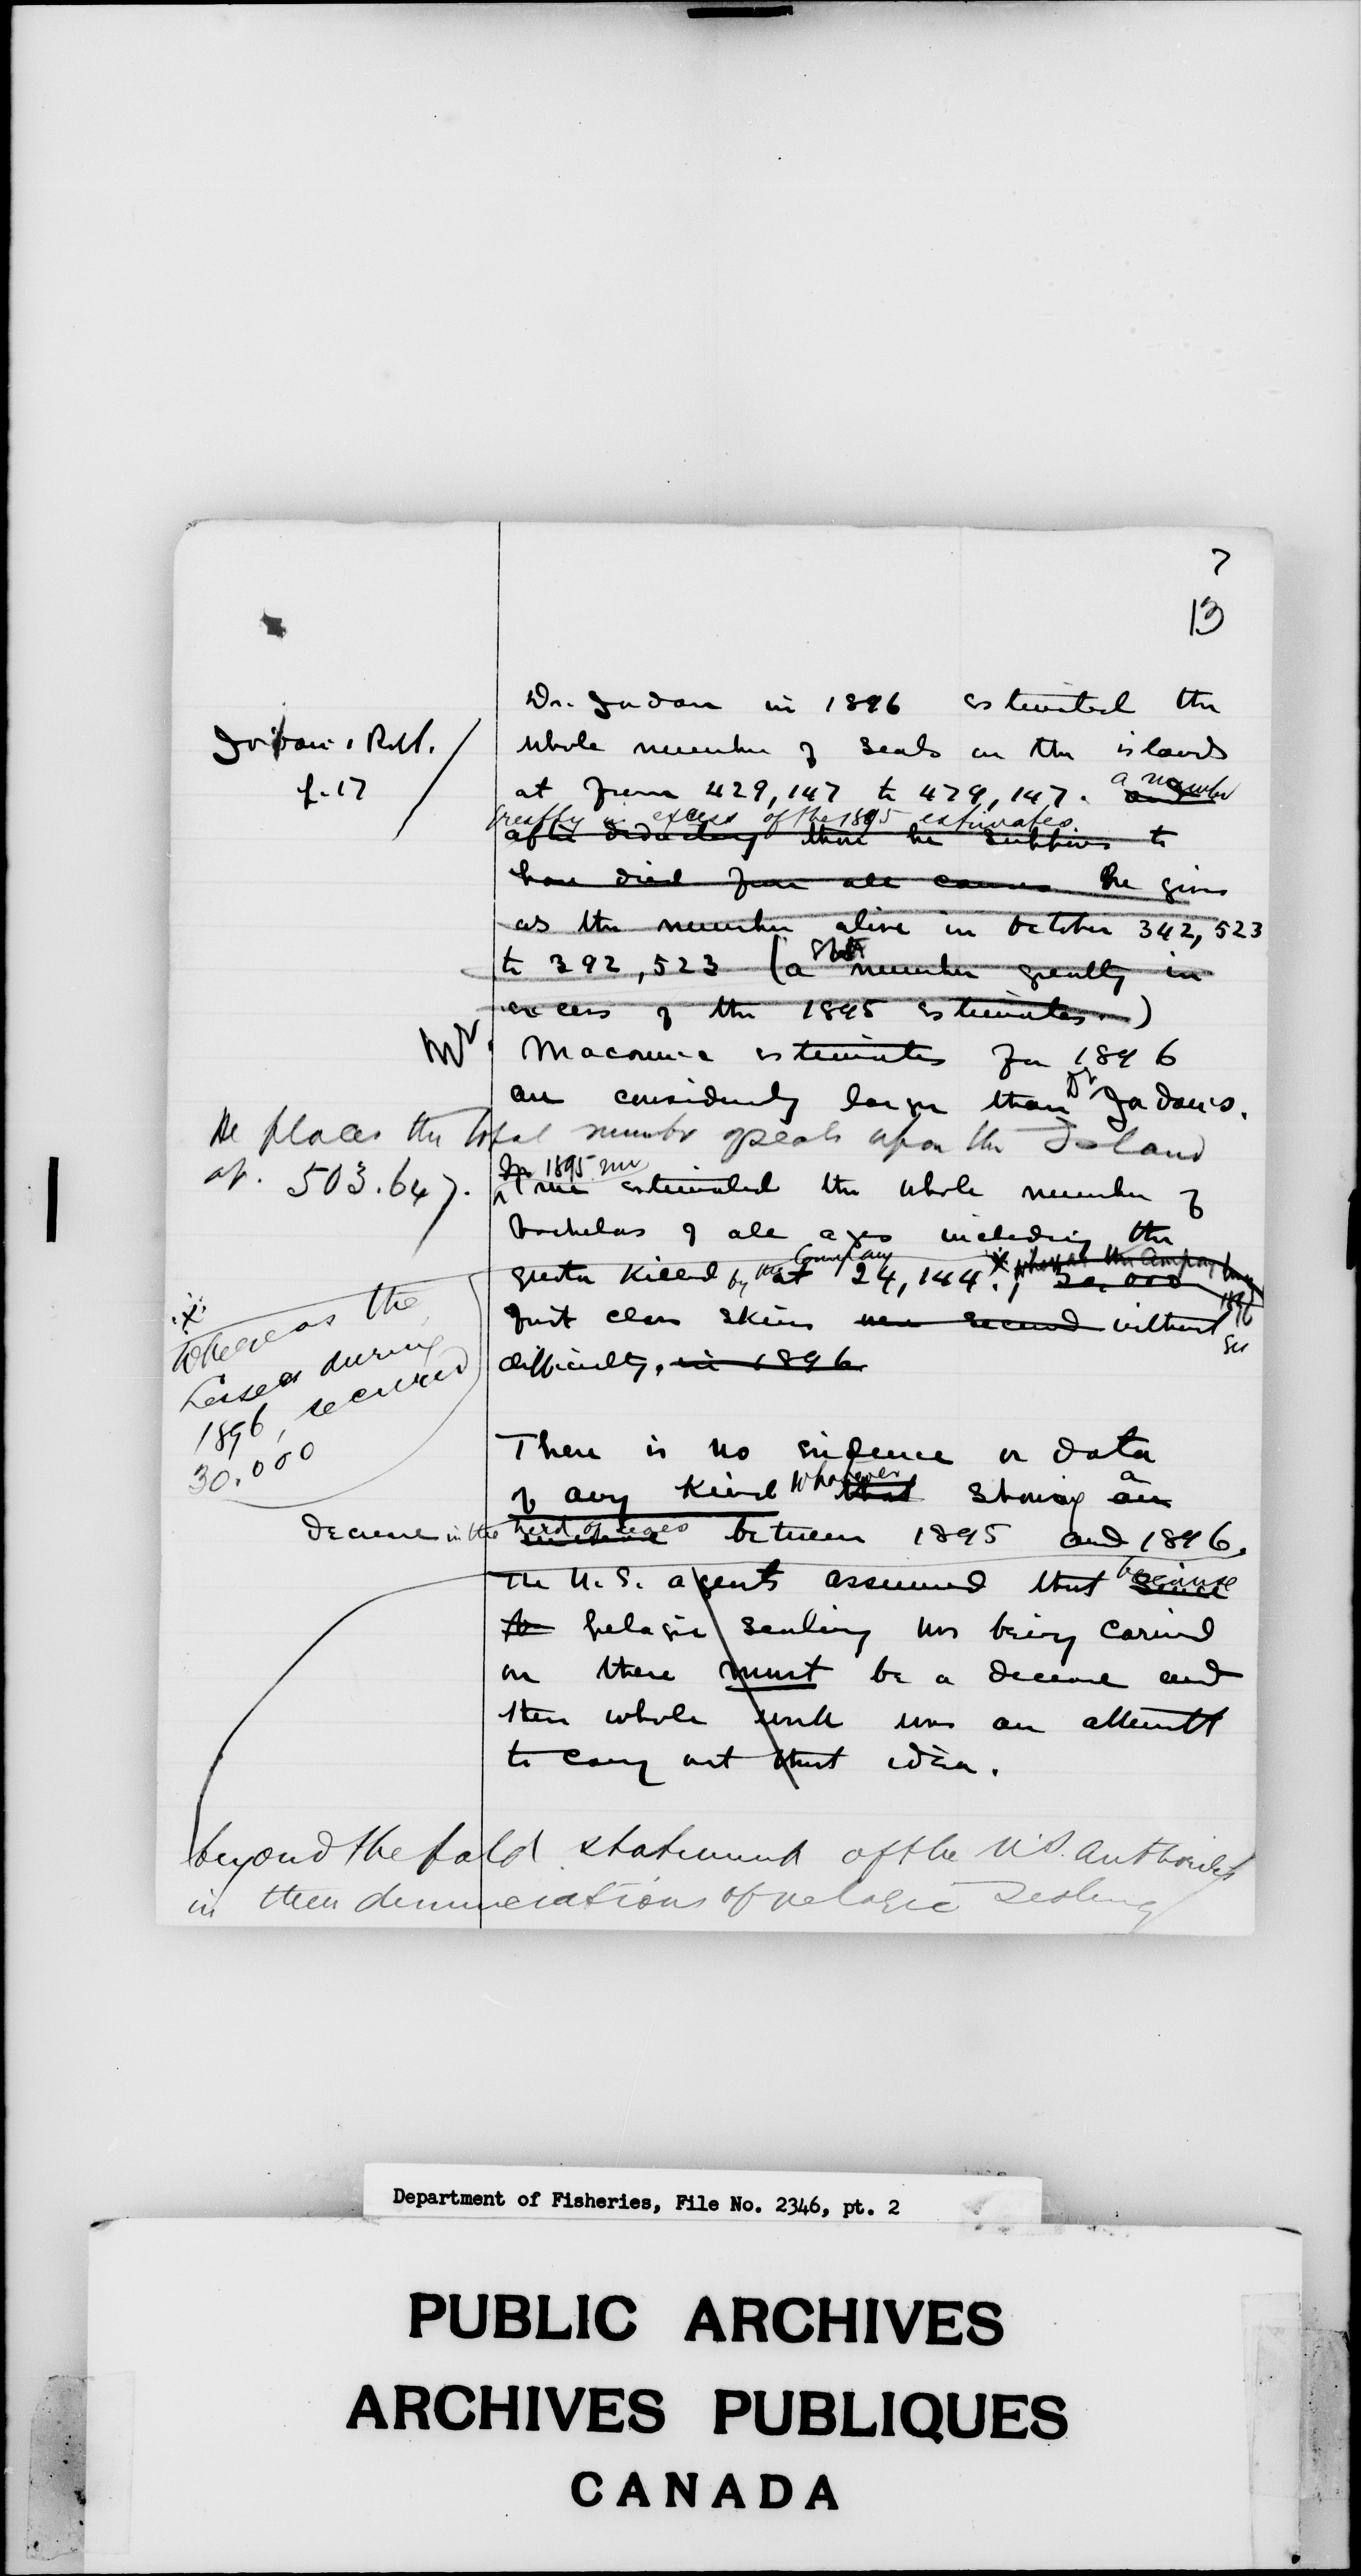 7
13
Dr. Jordan in 1896 estimated the
Jordan's Rept.
p. 17
whole number of seals on the islands
at from 429,147 to 479,147. and a number
greatly in excess of the 1895 estimates.
after deducting those he supposes to
have died from all causes he gives
as the number alive in October 342,523
to 392,523 (a number greatly in
excess of the 1895 estimates.)
Mr. Macoun's estimates for 1896
are considerably larger than Dr Jordan's.
He places the total number of seals upon the Island
at. 503.647.
In 1895 Mr
True estimated the whole number of
bachelors of all ages including the
quota killed by the Company at 24,144. x whereas the Company 30,000
1896
first class skins were secured without
difficulty. in 1896
x
Whereas the
Lessees during
1896, secured
30.000
There is no evidence or data
of any kind whatever that showing an a
decrease in the herd of seals between 1895 and 1896.
The U.S. agents assumed that since because
pelagic sealing was being carried
on there must be a decrease and
their whole work was an attempt
to carry out that idea.
beyond the bald statement of the U.S. Authorities
in their denunciations of pelagic Sealing
Department of Fisheries, File No. 2346, pt. 2
PUBLIC ARCHIVES
ARCHIVES PUBLIQUES
CANADA